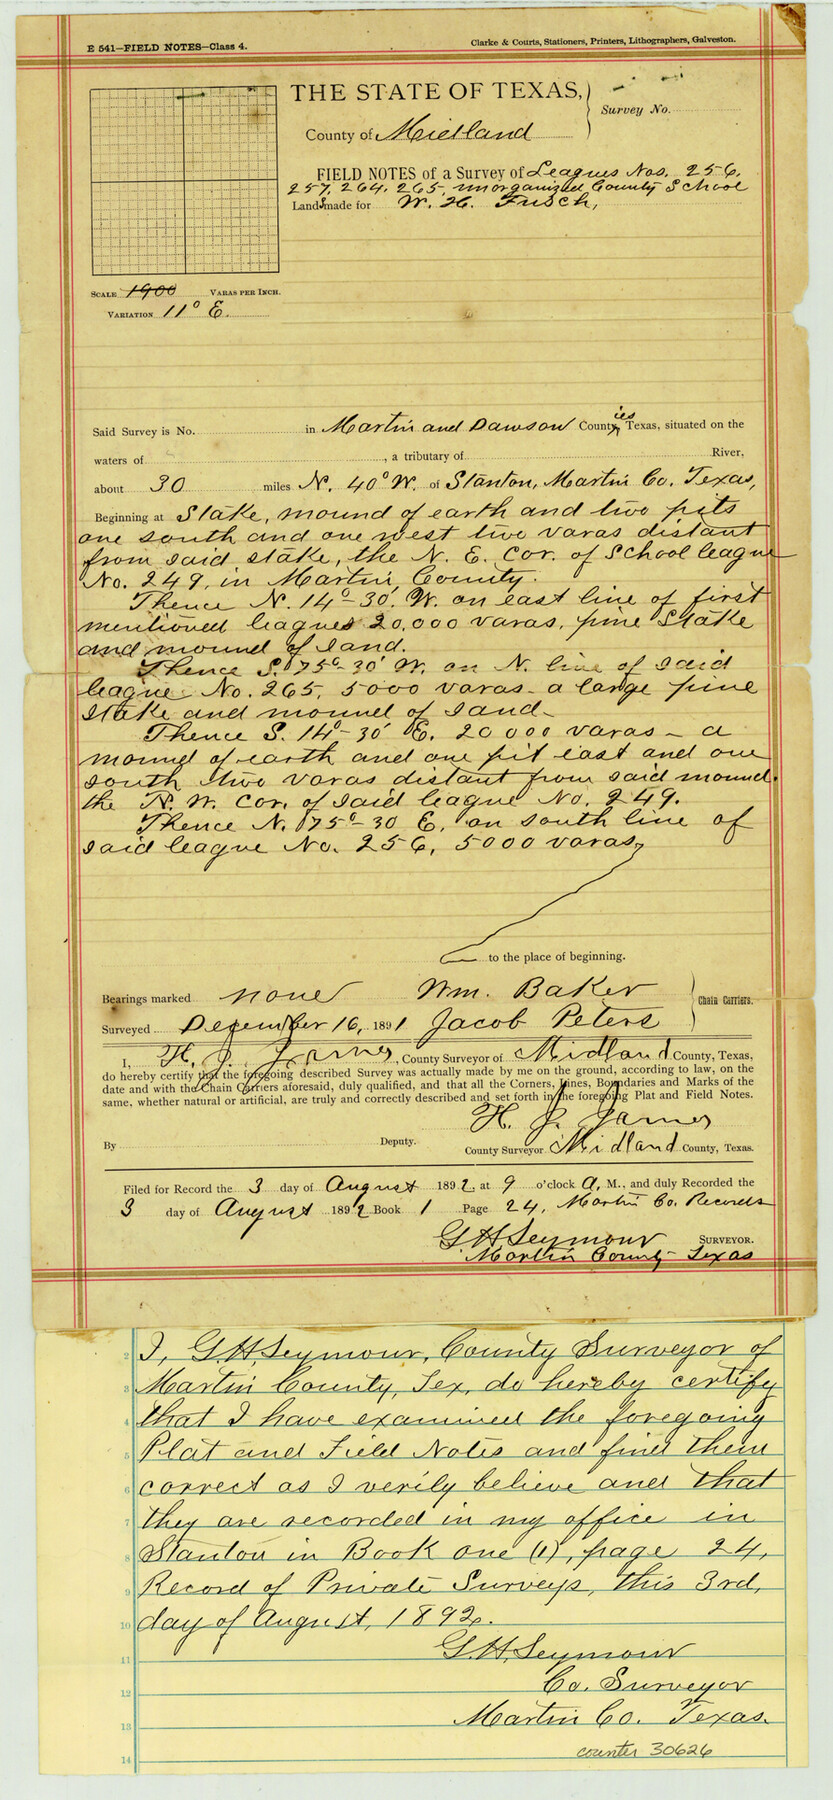 E 541—FIELD NOTES—Class 4.
Clarke & Courts, Stationers, Printers, Lithographers, Galveston.
THE STATE OF TEXAS,
Survey No.
County of Midland
FIELD NOTES of a Survey of Leagues Nos. 256,
257, 264, 265, unorganized County School
Lands made for W. H. Fusch,
SCALE 1900 VARAS PER INCH.
VARIATION 11° E.
Said Survey is No. in Martin and Dawson Counties Texas, situated on the
waters of , a tributary of River,
about 30 miles N. 40° W. of Stanton, Martin Co. Texas,
Beginning at Stake, mound of earth and two pits
one south and one west two varas distant
from said stake, the N. E. Cor. of School league
No. 249, in Martin County.
Thence N. 14°-30' W. on east line of first
mentioned leagues 20,000 varas, pine stake
and mound of sand.
Thence S. 75°-30' W. on N. line of said
league No. 265, 5000 varas - a large pine
stake and mound of sand -
Thence S. 14°-30' E. 20000 varas - a
mound of earth and one pit east and one
south two varas distant from said mound.
the N. W. Cor. of said league No. 249.
Thence N. 75°-30 E. on south line of
said league No. 256, 5000 varas,
to the place of beginning.
Bearings marked none Wm. Baker
Chain Carriers.
Surveyed December 16, 1891 Jacob Peters
I, H. J. James, County Surveyor of Midland County, Texas,
do hereby certify that the foregoing described Survey was actually made by me on the ground, according to law, on the
date and with the Chain Carriers aforesaid, duly qualified, and that all the Corners, Lines, Boundaries and Marks of the
same, whether natural or artificial, are truly and correctly described and set forth in the foregoing Plat and Field Notes.
H. J. James
By Deputy. County Surveyor Midland County, Texas.
Filed for Record the 3 day of August 1892, at 9 o'clock A. M., and duly Recorded the
3 day of August 1892 Book 1 Page 24, Martin Co. Records
G H Seymour SURVEYOR.
Martin County Texas
2 I, G. H. Seymour, County Surveyor of
3 Martin County, Tex, do hereby certify
4 that I have examined the foregoing
5 Plat and Field Notes and find them
6 correct as I verily believe and that
7 they are recorded in my office in
8 Stanton in Book one (1), page 24,
9 Record of Private Surveys, this 3rd,
10 day of August, 1892.
11 G. H. Seymour
12 Co. Surveyor
13 Martin Co. Texas.
counter 30626
14